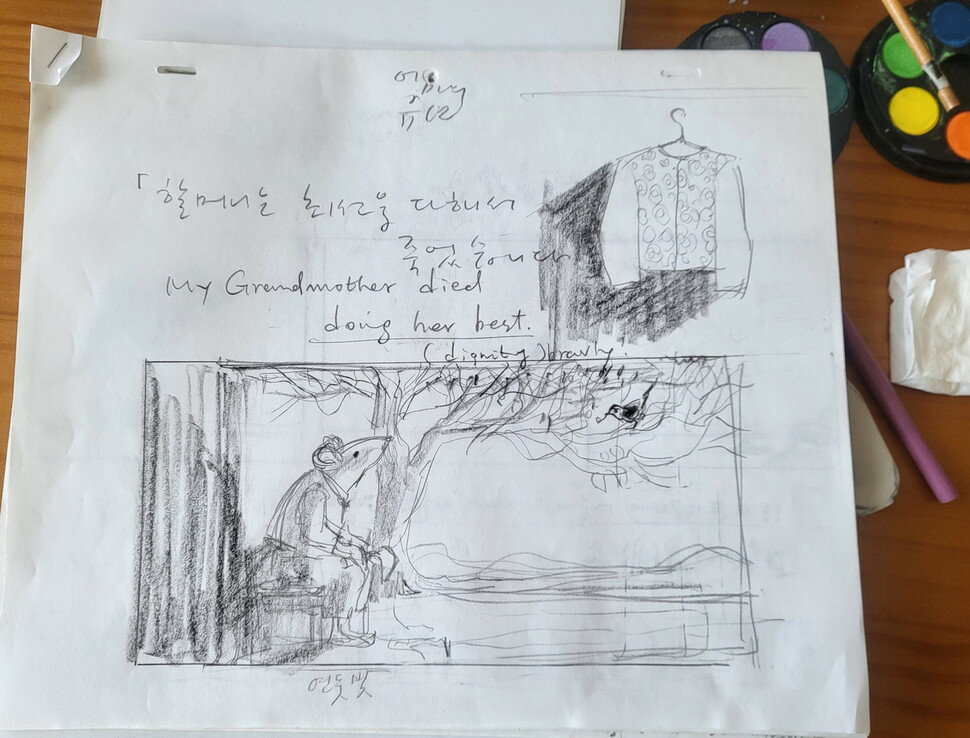 「할머니는 최선을 다해서
죽었습니다
My Grandmother died
doing her best.
(dignity)
연둣빛